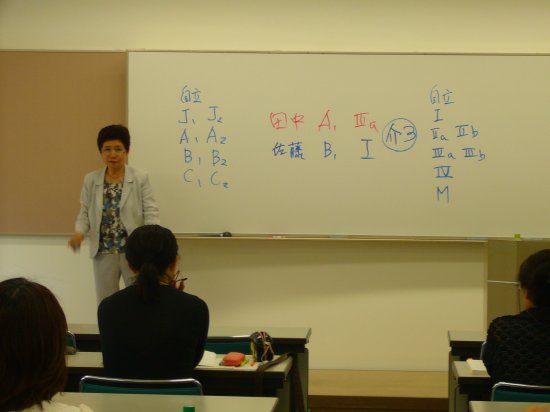 自立
J₁ J₂
A₁ A₂
B₁ B₂
C₁ C₂
田中 A₁ Ⅲa 介3
佐藤 B₁ Ⅰ
自立
Ⅰ
Ⅱa Ⅱb
Ⅲa Ⅲb
Ⅳ
M